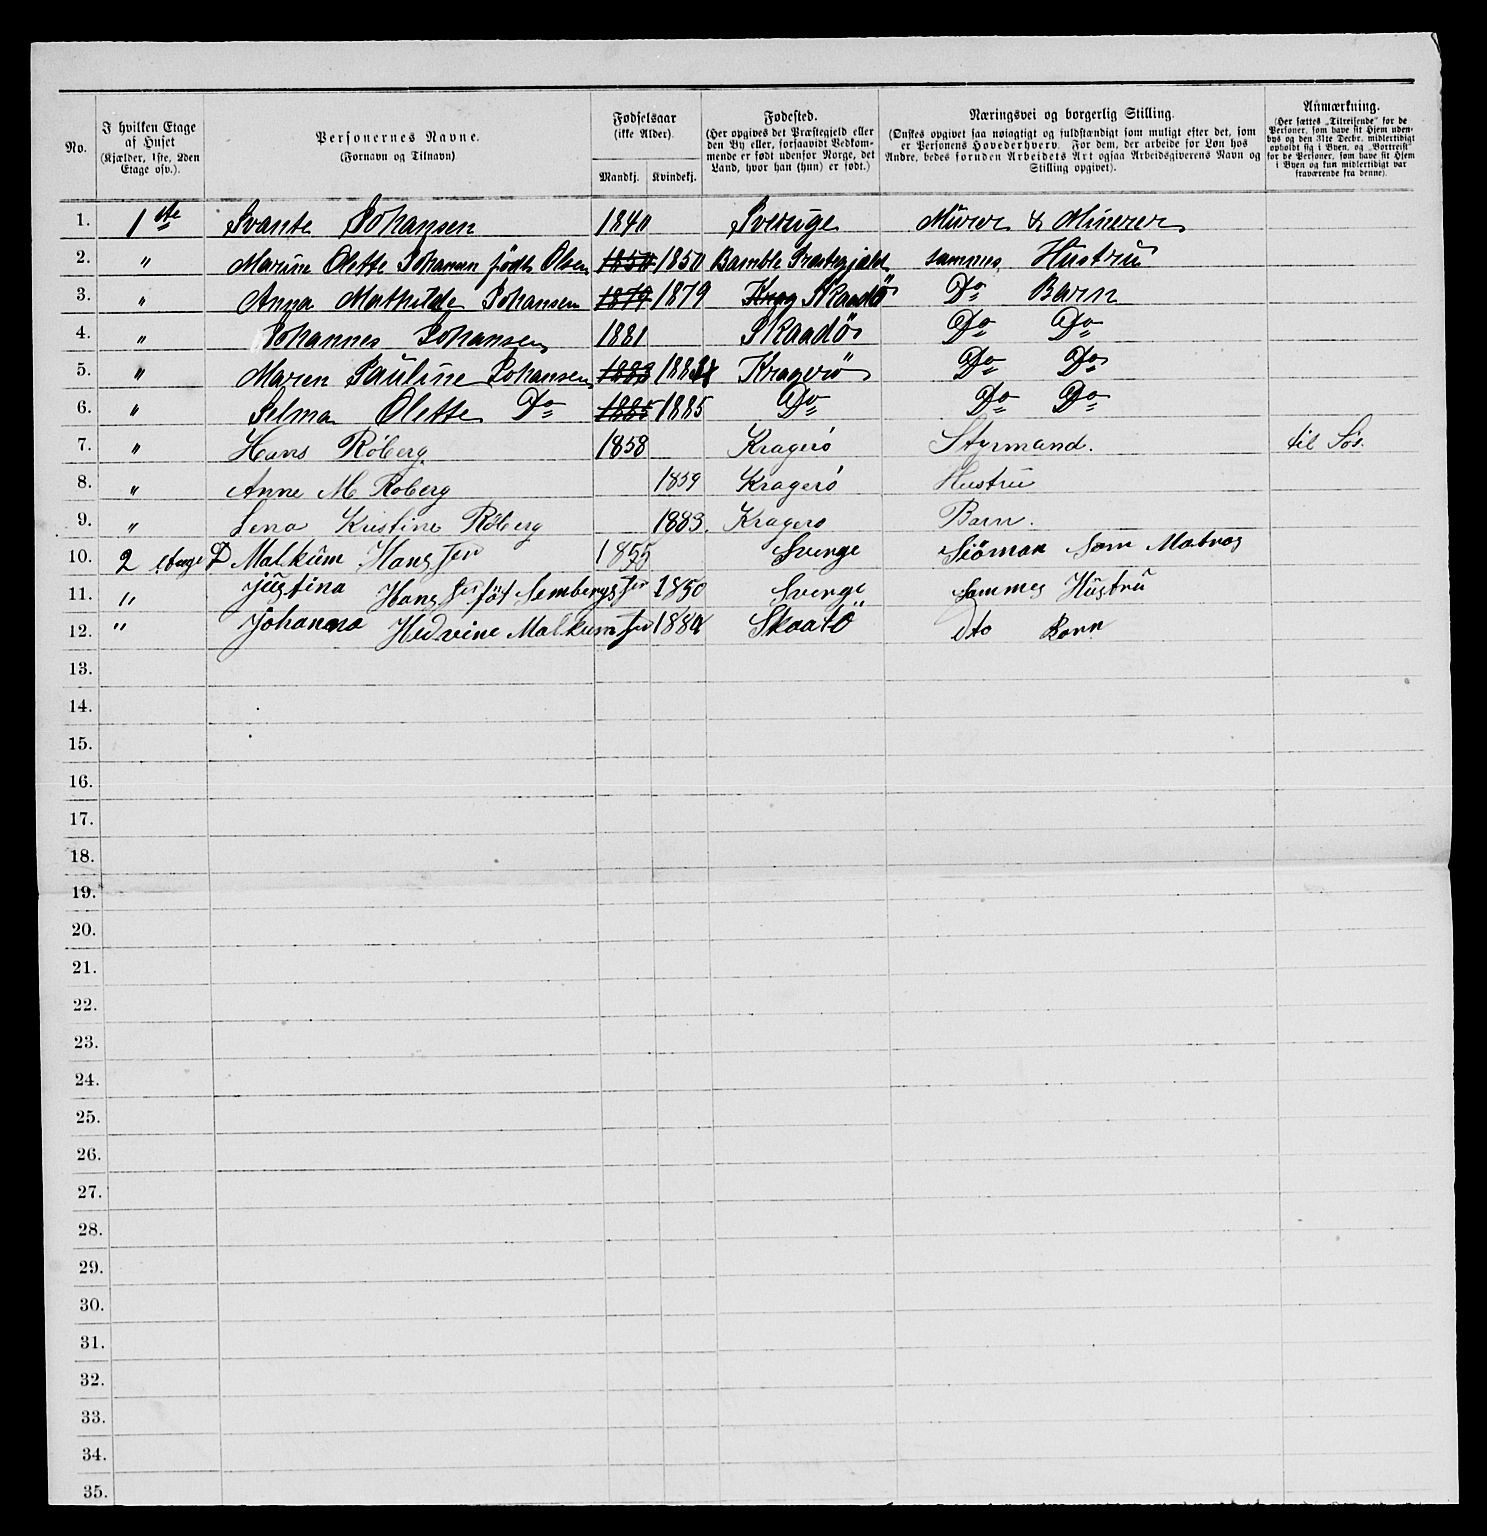 No.
I hvilken Etage af Huset (Kjælder, 1ste, 2den Etage osv.).
Personernes Navne. (Fornavn og Tilnavn)
Fødselsaar (ikke Alder). Mandkj. Kvindekj.
Fødested. (Her opgives det Præstegjeld eller den By eller, forsaavidt Vedkommende er født udenfor Norge, det Land, hvor han (hun) er født.)
Næringsvei og borgerlig Stilling. (Ønskes opgivet saa nøiagtigt og fuldstændigt som muligt efter det, som er Personens Hovederhverv. For dem, der arbeide for Løn hos Andre, bedes foruden Arbeidets Art ogsaa Arbeidsgiverens Navn og Stilling opgivet).
Anmærkning. (Her sættes „Tilreisende“ for de Personer, som have sit Hjem udenbys og den 31te Decbr. midlertidigt opholdt sig i Byen, og „Bortreist“ for de Personer, som have sit Hjem i Byen og kun midlertidigt var fraværende fra denne).
1. 1ste Svante Johansen 1840 Sverige Murer & Minerer
2. " Marine Olette Johansen født Olsen 1850 1850 Bamble Præstegjæld sammes Hustru
3. " Anna Mathilde Johansen 1879 1879 Krag Skaadö Do Barn
4. " Johannes Johansen 1881 Skaadö Do Do
5. " Maren Pauline Johansen 1883 Kragerö Do Do
6. " Selma Olette Do 1885 1885 Do Do Do
7. " Hans Röberg 1858 Kragerö Styrmand. til Søs.
8. " Anne M Roberg 1859 Kragerö Hustru
9. " Lena Kristine Röberg 1883. Kragero Barn.
10. 2 etage Malkum Hanssen 1855 Sverge Siöman Som Matros
11. " Justina Hanssen föt 1850 Sverge Sammes Hustru
12. " Johanna Hedvine Malkumsen 1884 Skaatö dto Barn
13.
14.
15.
16.
17.
18.
19.
20.
21.
22.
23.
24.
25.
26.
27.
28.
29.
30.
31.
32.
33.
34.
35.